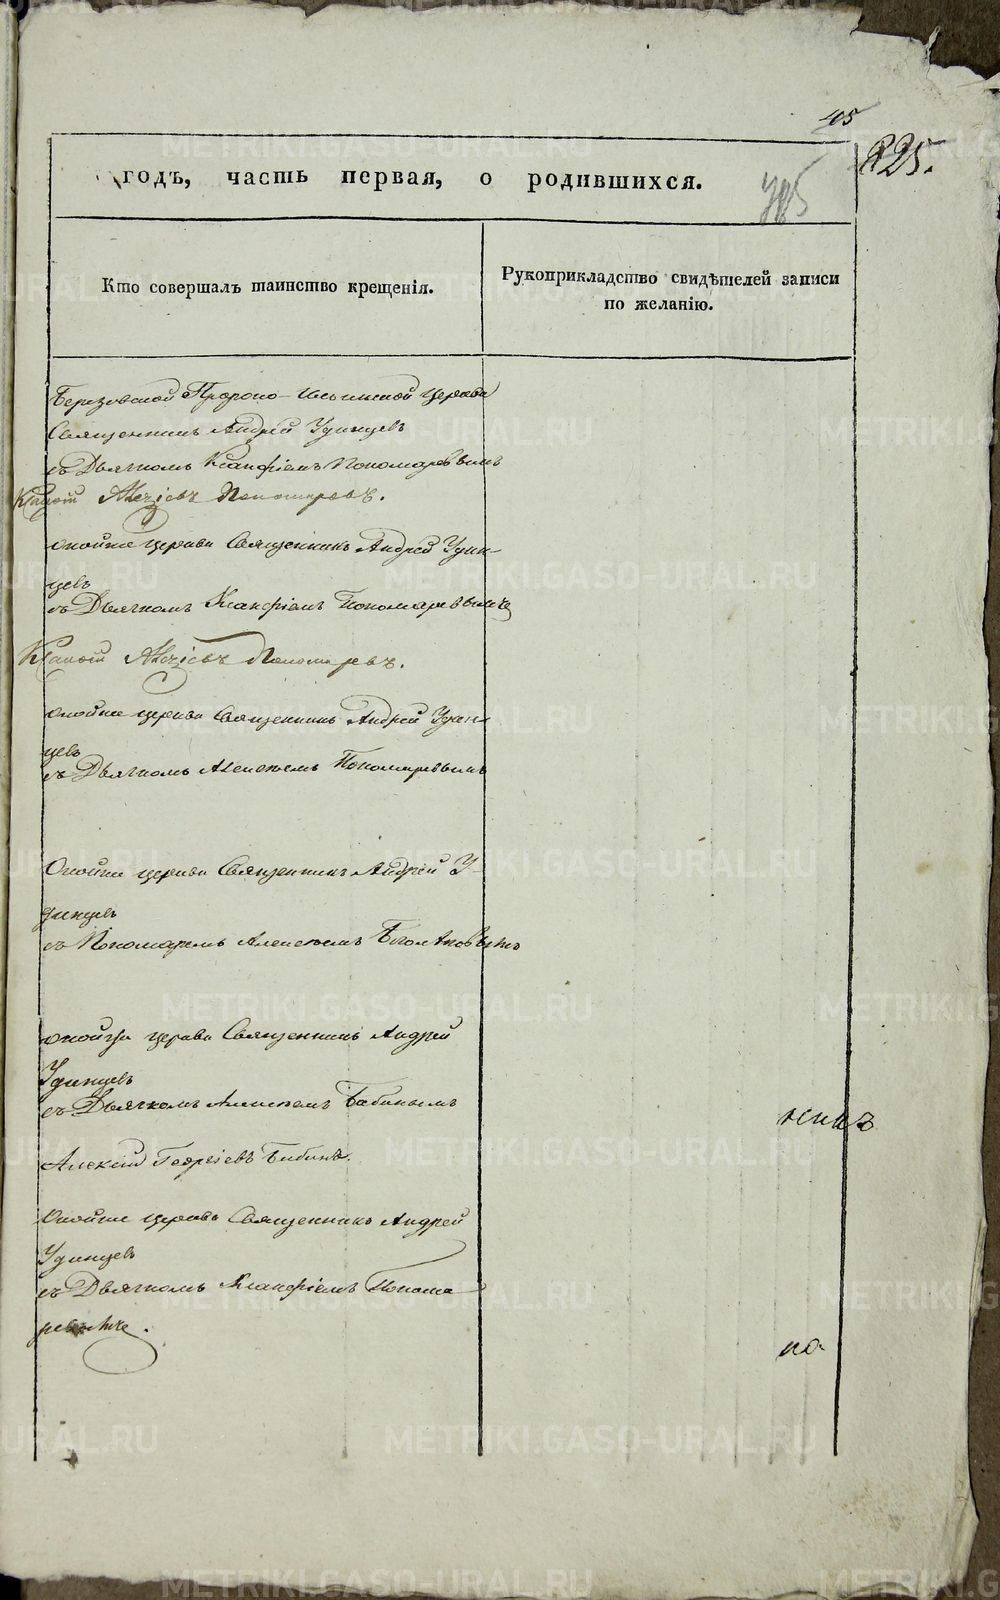 45
225.
годъ, часть первая, о родившихся.
Кто совершалъ таинство крещенія.
Рукоприкладство свидѣтелей записи
по желанію.
Березовской Пророко-Ильинской Церкви
Священникъ Андрей Удинцевъ
съ Дьячкомъ Ксанфіемъ Пономаревымъ
Пономаревъ.
оной же церкви Священникъ Андрей Удин-
цевъ
съ Дьячкомъ Ксанфіемъ Пономаревымъ
Пономаревъ.
оной же церкви Священникъ Андрей Удин-
цевъ
съ Дьячкомъ Алексѣемъ Пономаревымъ
Оной же церкви Священникъ Андрей У-
динцевъ
съ Пономаремъ Алексѣемъ
оной же церкви Священникъ Андрей
Удинцевъ
съ Дьячкомъ Алексѣемъ Бабинымъ
Алексѣй Георгіевъ Бабинъ.
Оной же церкви Священникъ Андрей
Удинцевъ
съ Дьячкомъ Ксанфіемъ Понома
METRIKI.GASO-URAL.RU